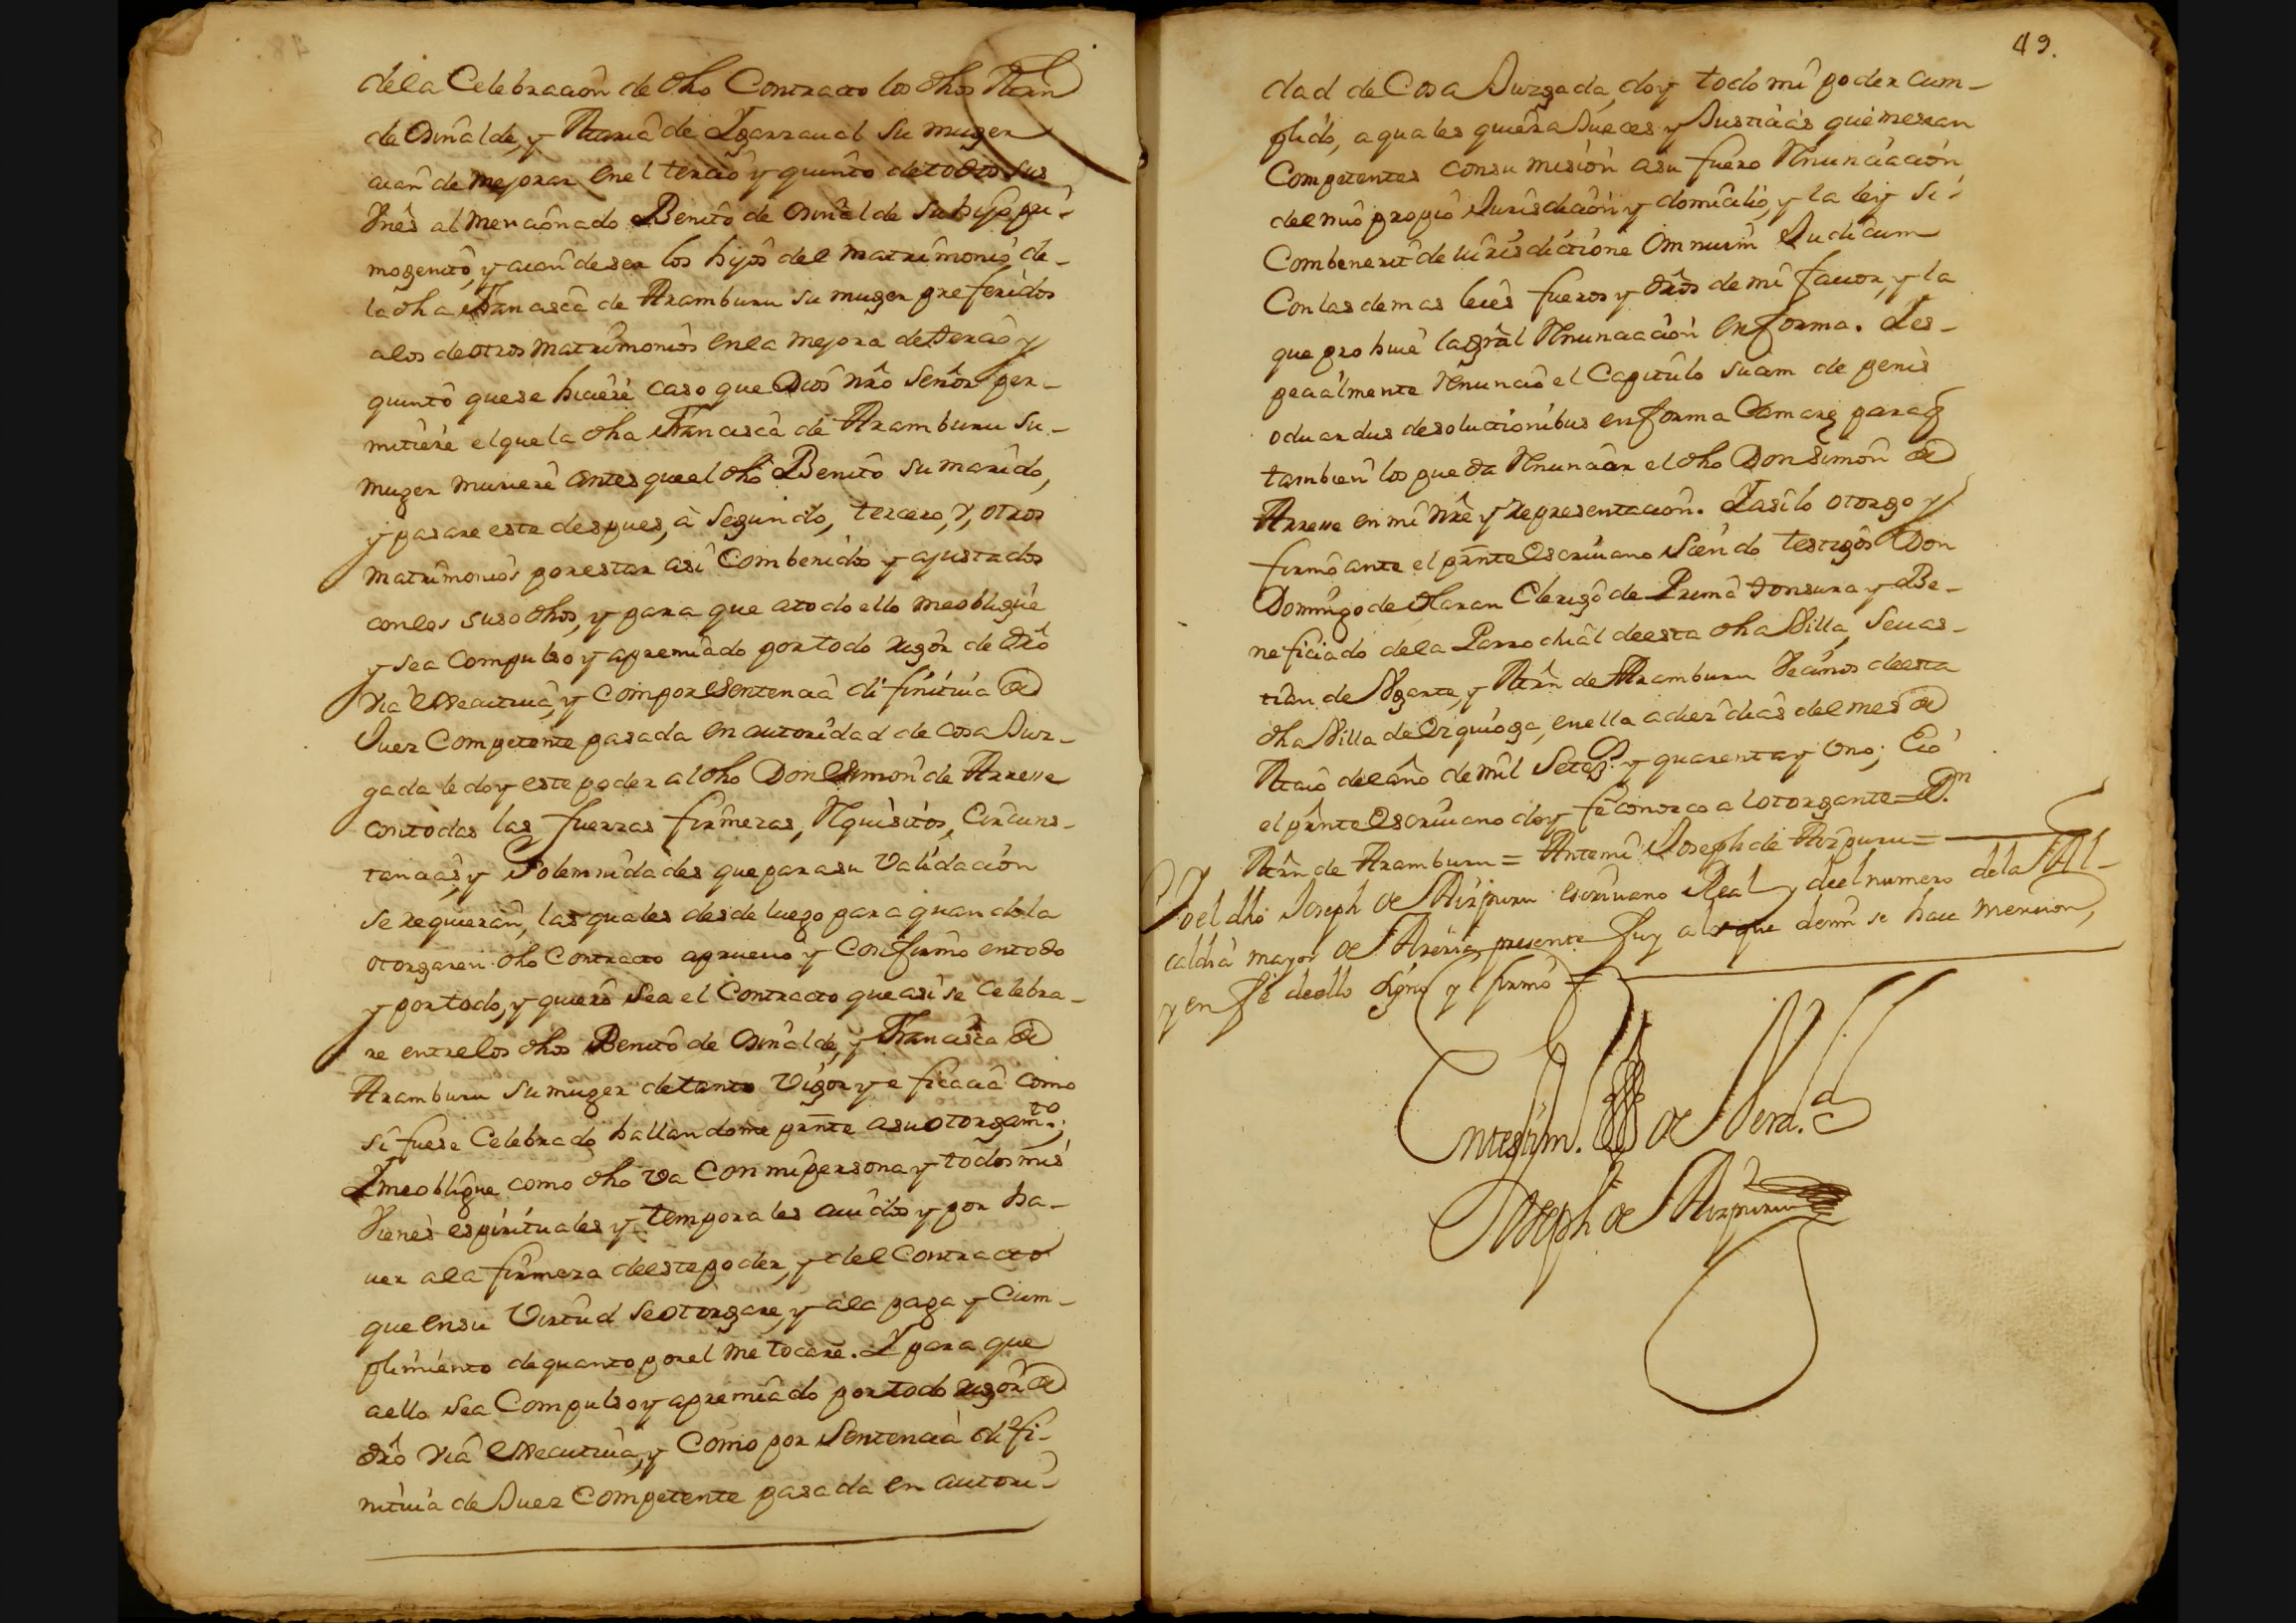 dela Celebracion de dho Contracto los dhos Mrñ
de Osinalde, y Maria de Igarraual su muger
aian de mejorar enel tercio y quinto de todos sus
Vnes al mencionado Benito de Osinalde su hijo pri-
mogenito, y aian de ser los hijos del matrimonio de-
la dha Francisca de Aramburu su muger preferidos
alos de otros matrimonios enla mejora de tercio y
quinto que se hiciere caso que Dios nrõ Señor per-
mitiere el que la dha Francisca de Aramburu su-
muger muriere antes que el dho Benito su marido,
y pasare este despues, à segundo, tercero, y, otros
matrimonios por estar asi combenidos y ajustados
conlos suso dhos, y para que atodo ello me obligue
y sea compulso y apremiado por todo rigor de dro
via executiua, y como por sentencia difinitiua de
Juez Competente pasada en autoridad de cosa Juz-
gada le doy este poder al dho Don Simon de Arreue
con todas las fuerzas firmezas, Requisitos, Circuns-
tancias, y Solemnidades que para su Validacion
se requieran, las quales desde luego para quando la
otorgaren dho Contracto aprueuo y Confirmo entodo
y por todo, y quiero sea el Contracto que asi se Celebra-
re entre los dhos Benito de Osinalde, y Francisca de
Aramburu su muger de tanto Vigor y eficacia como
si fuese Celebrado hallandome prñte a su otorgamto.;
I me obligue como dho va Con mi persona y todos mis
Vienes espirituales y temporales auidos y por ha-
uer ala firmeza deeste poder, y del Contracto
que ensu Virtud se otorgare, y ala paga y Cum-
plimiento de quanto por el me tocare. I para que
aello sea Compulso y apremiado por todo rigor de
dro via executiua, y Como por Sentencia difi-
nitiua de Juez Competente pasada en autori-
49.
dad de Cosa Juzgada, doy todo mi poder cum-
plido, a quales quiera Jueces y Justicias que me sean
Competentes con sumision asu fuero Renunciacion
del mio propio Jurisdicion y domicilio, y la ley si-
Combenerit de iurisdictione Omnium Judicum
Con las demas leies fueros y drõs de mi fauor, y la
que prohiue la gral Renunciacion en forma. I es-
pecialmente Renuncio el Capitulo suam de penis
oduardus de solucionibus en forma Camare para q
tambien los pueda Renunciar el dho Don Simon de
Arreue en mi nre y representacion. I asi lo otorgo y
firmo ante el prñte escriuano siendo testigos Don
Domingo de Olaran Clerigo de Prima tonsura y Be-
neficiado dela Parrochial deesta dha Villa, Seuas-
tian de Vgarte, y Mrñ de Aramburu Vecinos deesta
dha Villa de Ezquioga, enella a diez dias del mes de
Maio del año de mil Setezs. y quarenta y Vno; E io
el prñte escriuano doy fe conozco al otorgante = Dn.
Mrñ de Aramburu = Antemi Joseph de Aizpuru =
Io el dho Joseph de Aizpuru escriuano Real y deel numero dela Al-
caldia mayor de Areria presente fuy a lo que demi se hace mencion,
y en fe deello signo y firmo =
En testim. de Verd.d
Joseph de Aizpuru